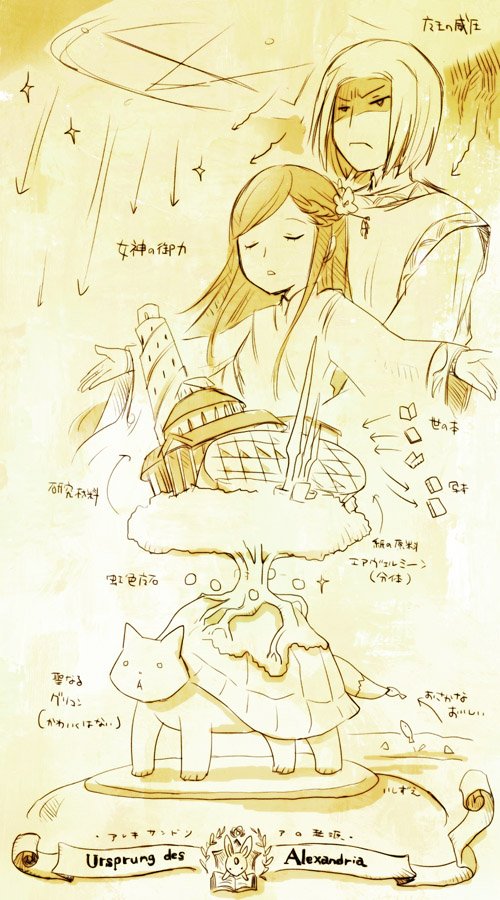 王の威圧
女神の御力
世の本
写本
研究材料
紙の原料
エアヴェルミーン
(分体)
虹色
聖なる
グリュン
(かわいくはない)
おさかな
おいしい
いしずえ
・アレキサンドリアの起源・
Ursprung des Alexandria